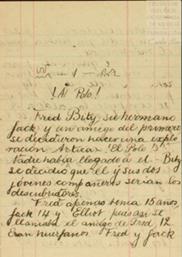 ¡Al Polo!
Fred Bety, su hermano
Jack y un amigo del primero
se decidieron hacer una explo
ración Artica: El Polo
Nadie había llegado a él. Bety
se decidió que él y sus dos
jóvenes compañeros serían los
descubridores.
Fred apenas tenía 15 años,
Jack 14 y Elliot, pues así se
llamaba el amigo de Fred, 12
Eran huérfanos. Fred y Jack